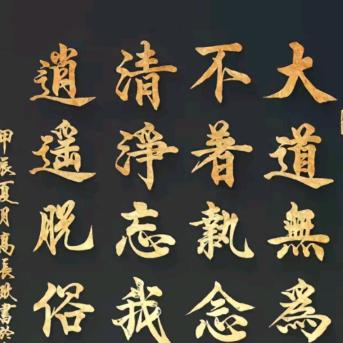 大道無為
不著執念
清淨忘我
逍遙脫俗
甲辰夏月高長